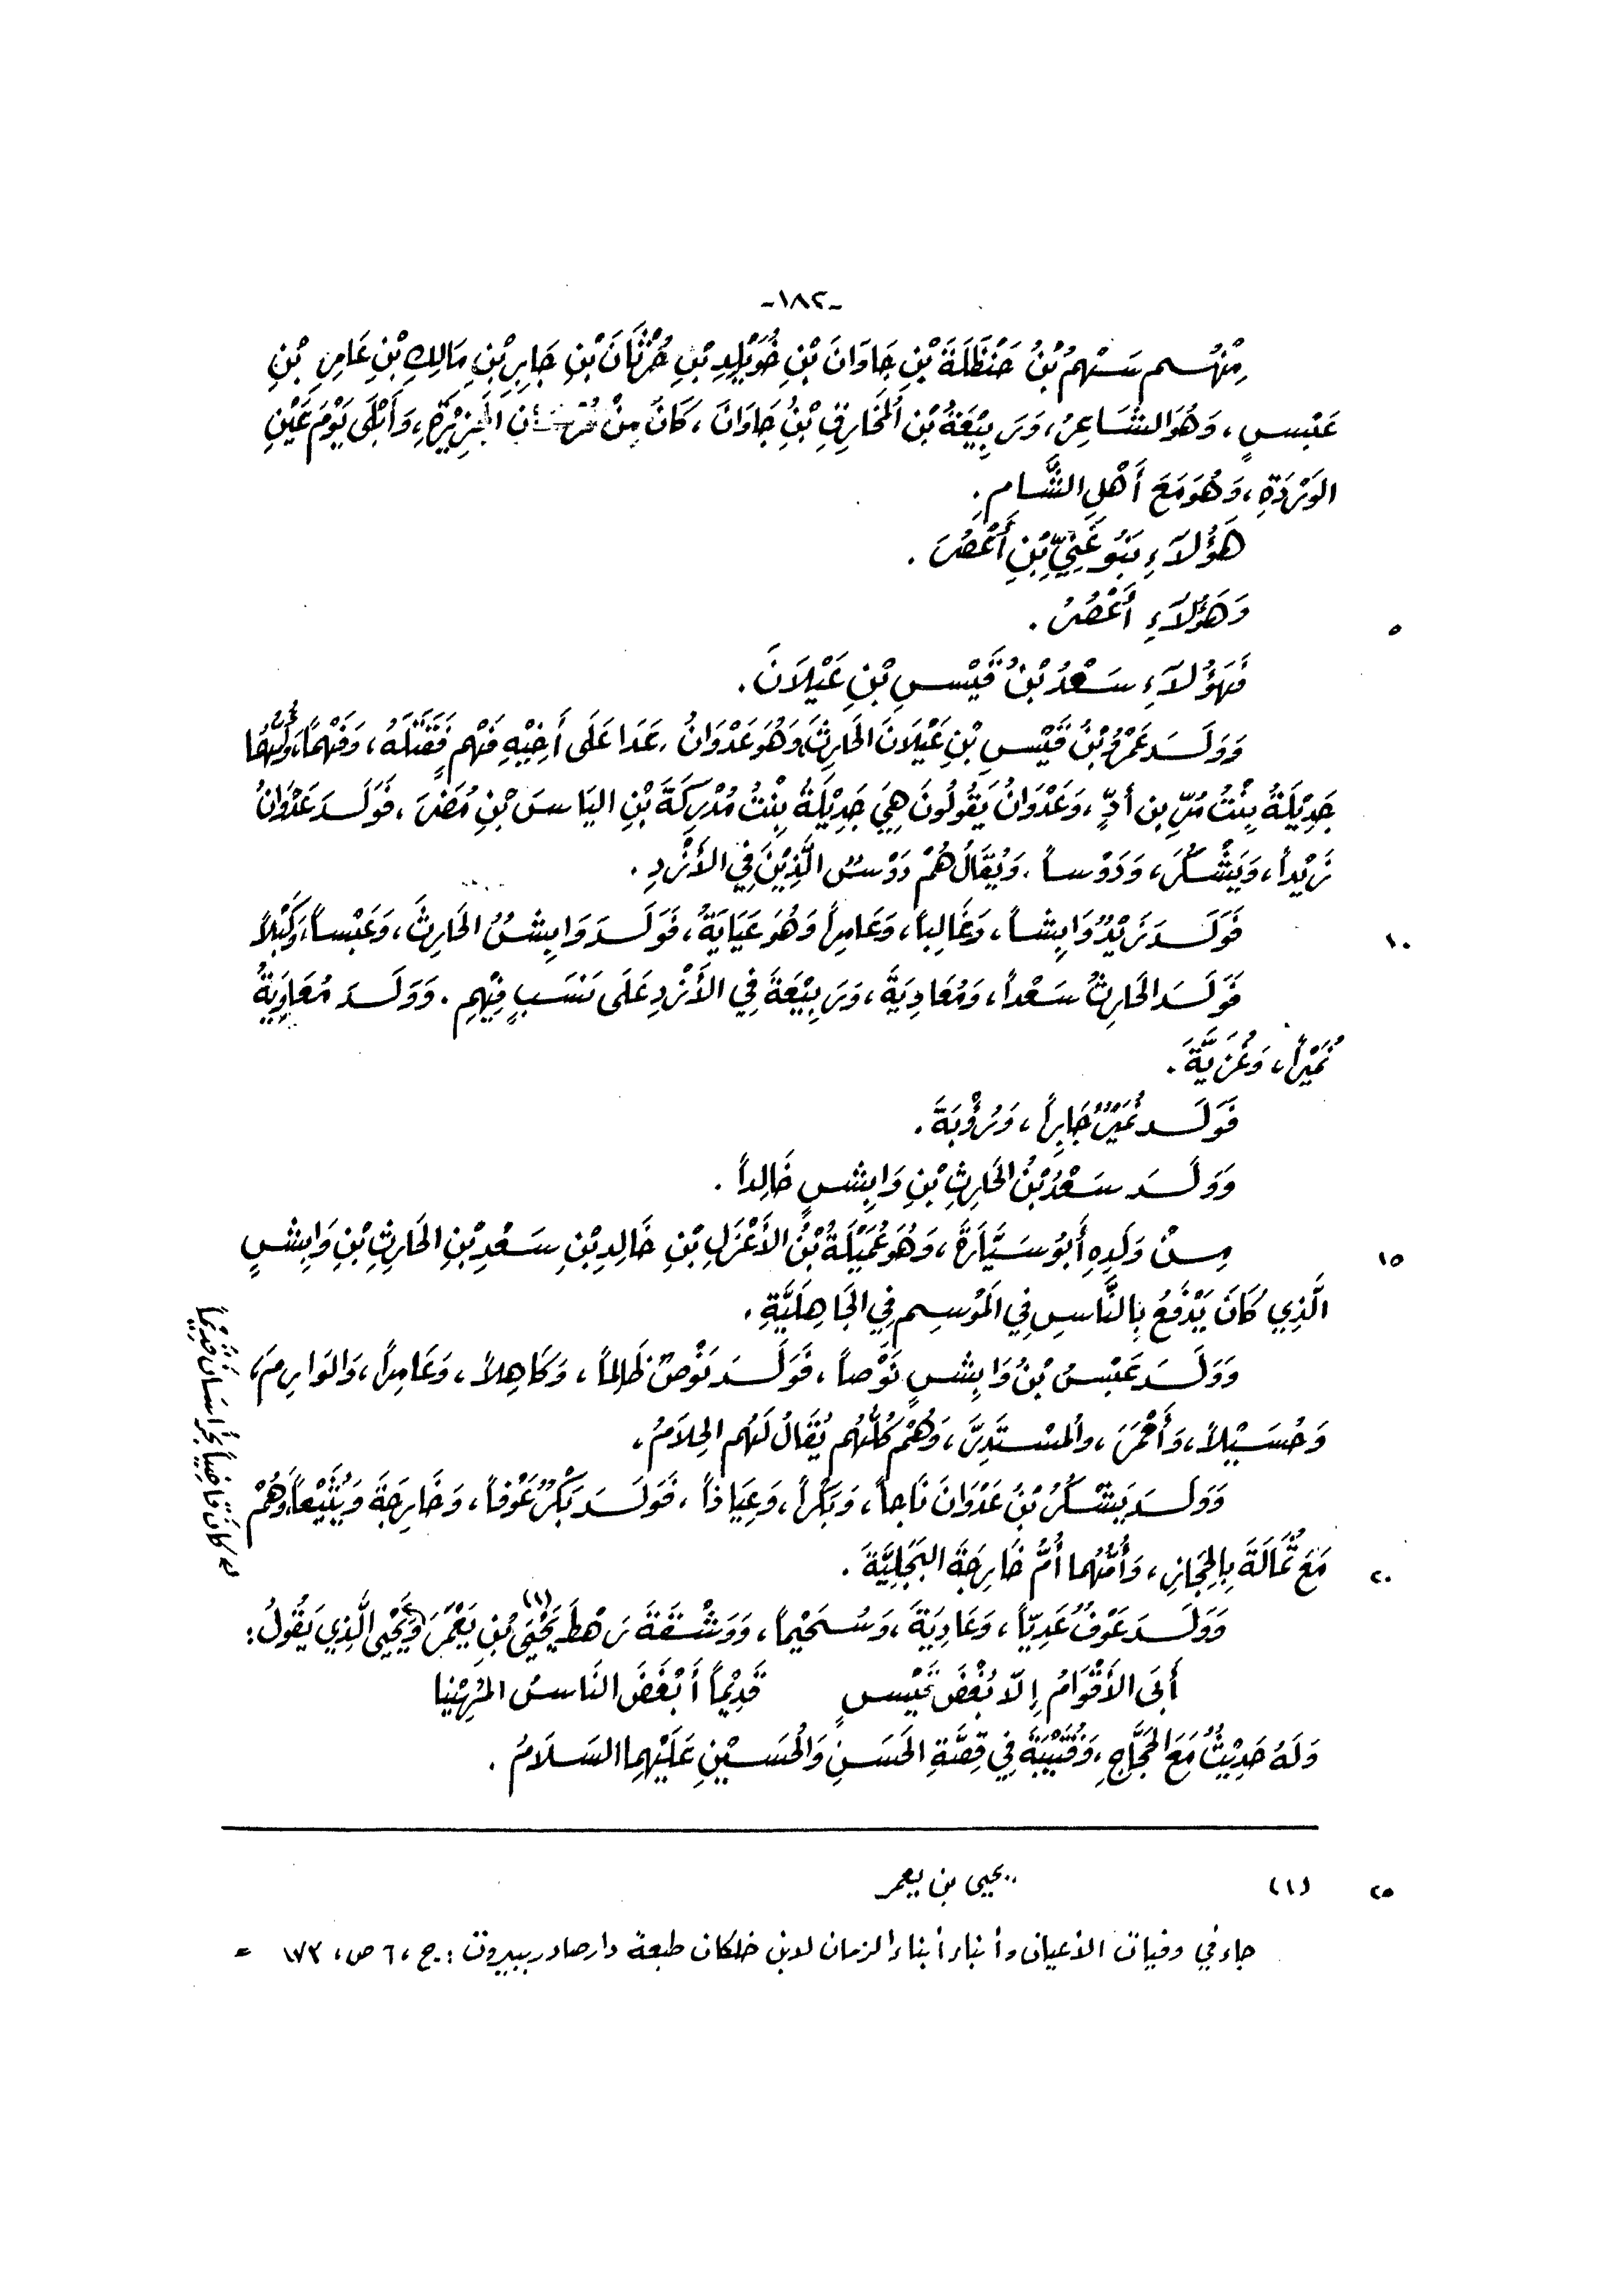 -١٨٢-
مِنْهُم سَهْمُ بْنُ حَنْظَلَةَ بْنِ جَاوَانَ بْنِ خُوَيْلِدِ بْنِ حُرْثَانَ بْنِ جَابِرِ بْنِ مَالِكِ بْنِ عَامِرِ بْنِ
عَبْسٍ، وَهُوَ الشَّاعِرُ، وَرَبِيْعَةُ بْنُ المُخَارِقِ بْنِ جَاوَانَ، كَانَ مِنْ فُرْسَانِ الجَزِيْرَةِ، وَأَبْلَى يَوْمَ عَيْنِ
الوَرْدَةِ، وَهُوَ مَعَ أَهْلِ الشَّامِ.
هَؤُلاَءِ بَنُو غَنِيِّ بْنِ أَعْصُرَ.
٥ وَهَؤُلاَءِ أَعْصُرُ.
فَهَؤُلاَءِ سَعْدُ بْنُ قَيْسِ بْنِ عَيْلَانَ.
وَوَلَدَ عَمْرُو بْنُ قَيْسِ بْنِ عَيْلَانَ الحَارِثَ وَهُوَ عَدْوَانُ، عَدَا عَلَى أَخِيْهِ فَهْمٍ فَقَتَلَهُ، وَفَهْماً، وَأُمُّهُمَا
جَدِيْلَةُ بِنْتُ مُرِّ بنِ أُدٍّ، وَعَدْوَانُ يَقُولُونَ هِيَ جَدِيْلَةُ بِنْتُ مُدْرِكَةَ بْنِ اليَاسَ بْنِ مُضَرَ، فَوَلَدَ عَدْوَانُ
زَيْداً، وَيَشْكُرَ، وَدَوْساً. وَيُقَالُ هُمْ دَوْسُ الَّذِيْنَ فِي الأَزْدِ.
١٠ فَوَلَدَ زَيْدٌ وَابِشاً، وَغَالِباً، وَعَامِراً وَهُوَ عَيَايَةُ، فَوَلَدَ وَابِشُ الحَارِثَ، وَعَبْساً، وَكَبْلاً
فَوَلَدَ الحَارِثُ سَعْداً، وَمُعَاوِيَةَ، وَرَبِيْعَةَ فِي الأَزْدِ عَلَى نَسَبٍ فِيْهِم. وَوَلَدَ مُعَاوِيَةُ
نُمَيْراً، وَغُزَيَّةَ.
فَوَلَدَ نُمَيْرٌ جَابِراً، وَرُؤْبَةَ.
وَوَلَدَ سَعْدُ بْنُ الحَارِثِ بْنِ وَابِشٍ خَالِداً.
١٥ مِنْ وَلَدِهِ أَبُو سَيَّارَةَ، وَهُوَ عُمَيْلَةُ بْنُ الأَعْزَلِ بْنِ خَالِدِ بْنِ سَعْدِ بْنِ الحَارِثِ بْنِ وَابِشٍ
الَّذِي كَانَ يَدْفَعُ بِالنَّاسِ فِي المَوْسِمِ فِي الجَاهِلِيَّةِ.
وَوَلَدَ عَبْسُ بْنُ وَابِشٍ نَوْصاً، فَوَلَدَ نَوْصٌ ظَالِماً، وَكَاهِلاً، وَعَامِراً، وَالوَارِمَ،
وَحُسَيْلاً، وَأَحْمَرَ، والمُسْتَدِرَّ، وَهُمْ كُلُّهُم يُقَالُ لَهُم الحِلاَمُ.
وَوَلَدَ يَشْكُرُ بْنُ عَدْوَانَ نَاجاً، وَبَكْراً، وَعِيَاذاً، فَوَلَدَ بَكْرٌ عَوْفاً، وَخَارِجَةَ وَيُثَيْعاً وَهُمْ
٢٠ مَعَ ثُمَالَةَ بِالحِجَازِ، وَأُمُّهُما أُمُّ خَارِجَةَ البَجَلِيَّةَ.
وَوَلَدَ عَوْفُ عَدِيّاً، وَعَادِيَةَ، وَسُحَيْماً، وَوَشْقَةَ رَهْطَ يَحْيَى بْنِ يَعْمَرَ(١) وَيَحْيَى الَّذِي يَقُولُ:
أَبَى الأَقْوَامُ إِلاَّ بُغْضَ قَيْسٍ قَدِيْماً أَبْغَضَ النَّاسُ المُهِيْنا
وَلَهُ حَدِيْثٌ مَعَ الحَجَّاجِ، وَقُتَيْبَةَ فِي قِصَّةِ الحَسَنِ وَالحُسَيْنِ عَلَيْهِما السَّلاَمُ.
كَانَ قَاضِياً بِخُرَاسَانَ قَدِيْماً
٢٥ (١) يحيى بن يعمر
جاء في وفيات الأعيان وأنباء أبناء الزمان لابن خلكان طبعة دار صادر ببيروت: ج، ٦ ص، ١٧٣ =